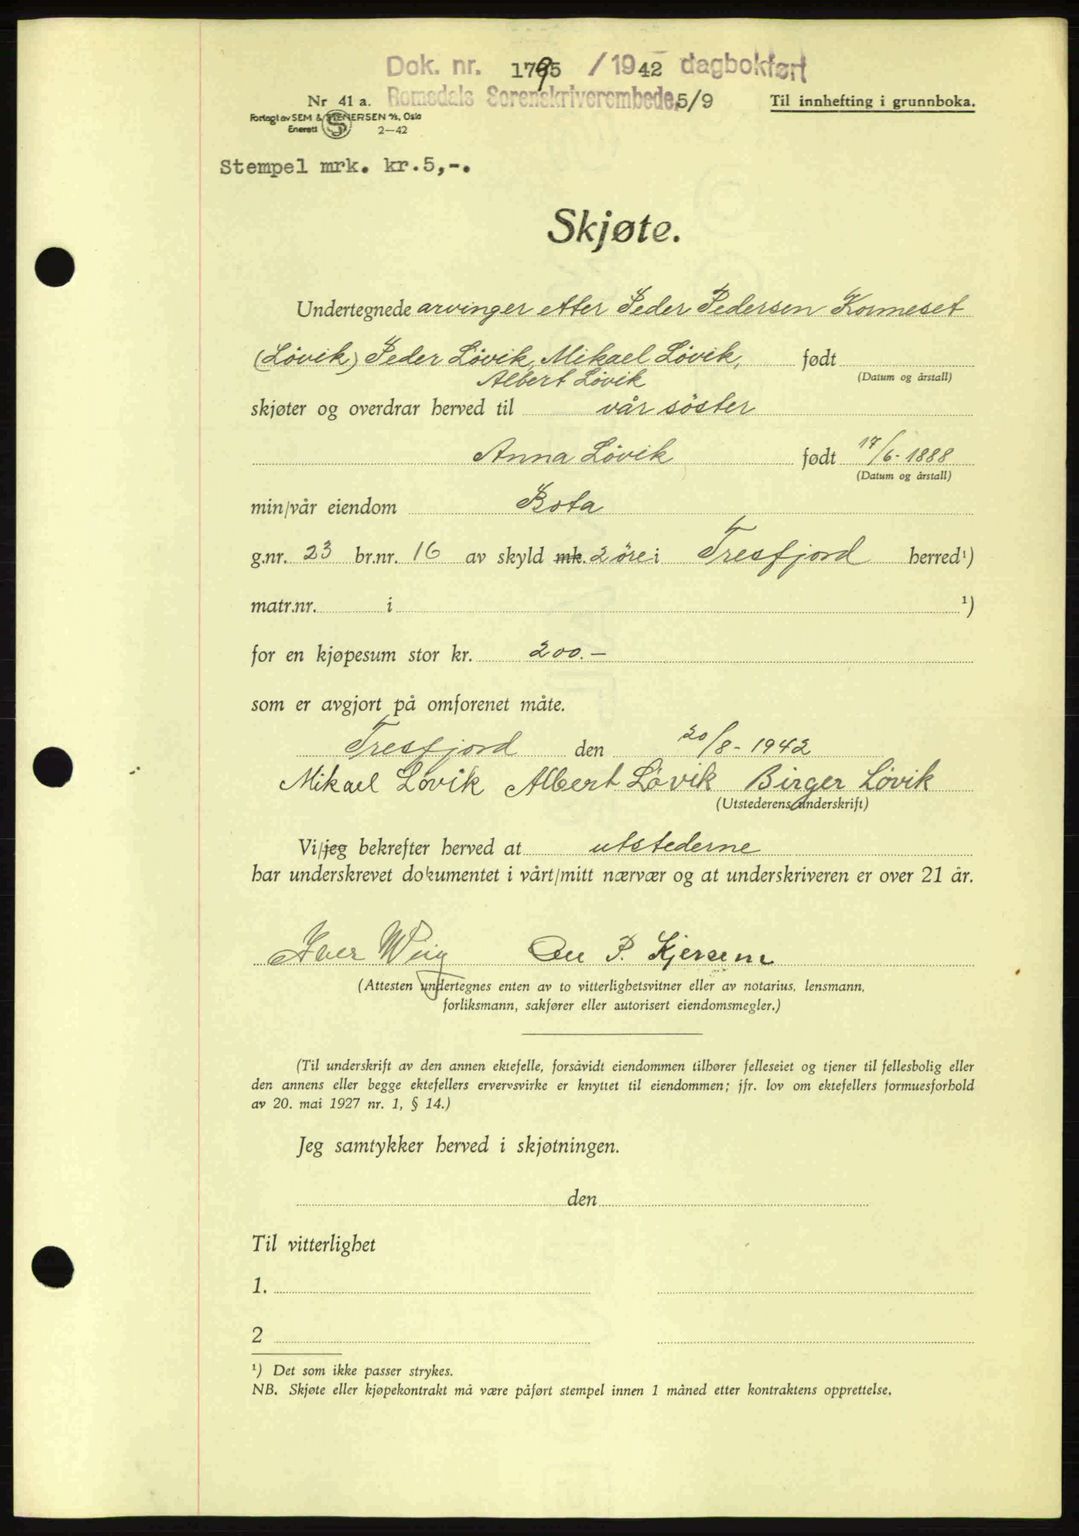 Dok. nr. 1795 / 1942 dagbokført
Nr 41 a. Romsdals Sorenskriverembede, 5/9 Til innhefting i grunnboka.
Forlagt av SEM & STENERSEN A/S, Oslo
Enerett 2—42
Stempel mrk. kr.5,-.
Skjøte.
Undertegnede arvinger etter Peder Pedersen Kormeset
(Løvik) Peder Løvik, Mikael Løvik, født
Albert Løvik (Datum og årstall)
skjøter og overdrar herved til vår søster
Anna Løvik født 17/6-1888
(Datum og årstall)
min/vår eiendom Bota
g.nr. 23 br.nr. 16 av skyld mk. 2 øre i Tresfjord herred¹)
matr.nr. i ¹)
for en kjøpesum stor kr. 200.—
som er avgjort på omforenet måte.
Tresfjord den 20/8-1942
Mikael Løvik Albert Løvik Birger Løvik
(Utstederens underskrift)
Vi/jeg bekrefter herved at utstederne
har underskrevet dokumentet i vårt/mitt nærvær og at underskriveren er over 21 år.
Iver Wiig Ole P. Kjersem
(Attesten undertegnes enten av to vitterlighetsvitner eller av notarius, lensmann,
forliksmann, sakfører eller autorisert eiendomsmegler.)
(Til underskrift av den annen ektefelle, forsåvidt eiendommen tilhører felleseiet og tjener til fellesbolig eller
den annens eller begge ektefellers ervervsvirke er knyttet til eiendommen; jfr. lov om ektefellers formuesforhold
av 20. mai 1927 nr. 1, § 14.)
Jeg samtykker herved i skjøtningen.
den
Til vitterlighet
1.
2
¹) Det som ikke passer strykes.
NB. Skjøte eller kjøpekontrakt må være påført stempel innen 1 måned etter kontraktens opprettelse.